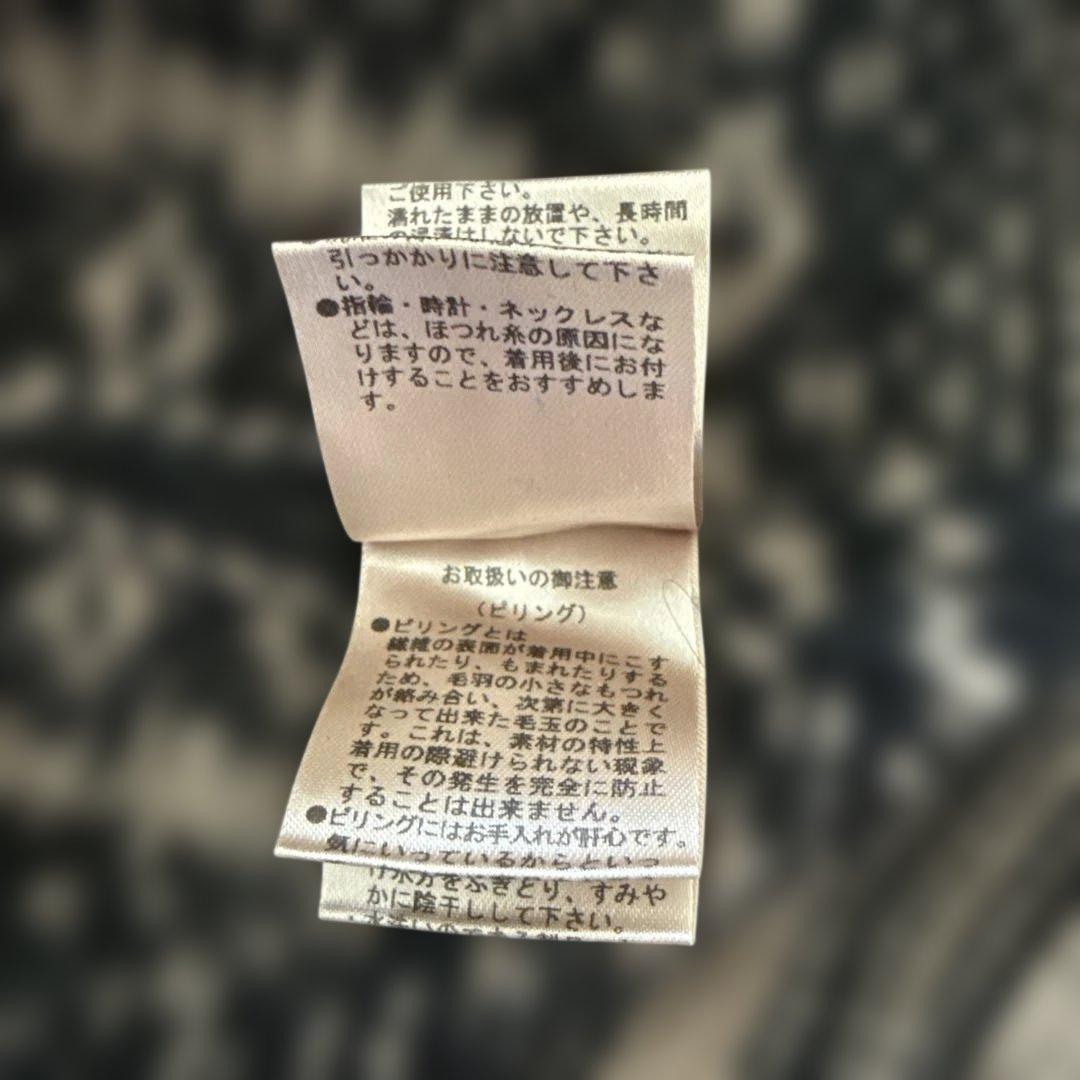 ご使用下さい。
濡れたままの放置や、長時間
の浸漬はしないで下さい。
引っかかりに注意して下さ
い。
●指輪・時計・ネックレスな
どは、ほつれ糸の原因にな
りますので、着用後にお付
けすることをおすすめしま
す。
お取扱いの御注意
(ピリング)
●ピリングとは
繊維の表面が着用中にこす
られたり、もまれたりする
ため、毛羽の小さなもつれ
が絡み合い、次第に大きく
なって出来た毛玉のことで
す。これは、素材の特性上
着用の際避けられない現象
で、その発生を完全に防止
することは出来ません。
●ピリングにはお手入れが肝心です。
気にいっているからといっ
け水分をふきとり、すみや
かに陰干しして下さい。